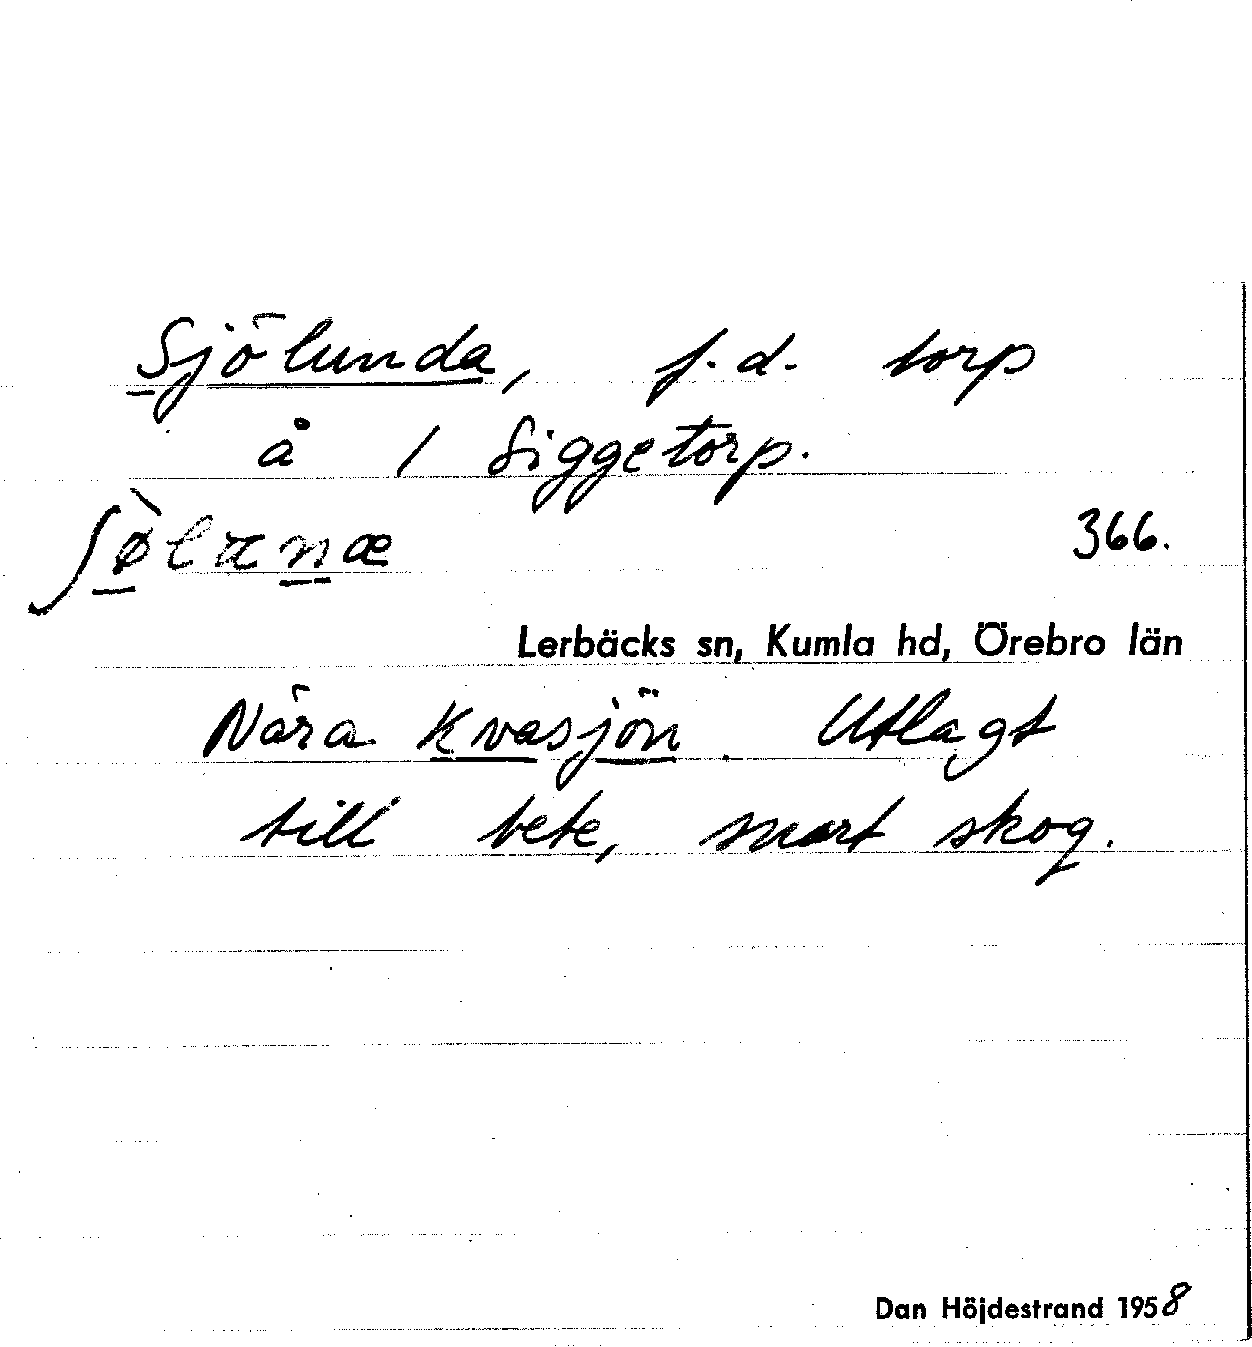 Sjölunda, f.d. torp
å 1 Siggetorp.
366.
Lerbäcks sn, Kumla hd, Örebro län
Nära Kvasjön. Utlagt
till bete, snart skog.
Dan Höjdestrand 1958